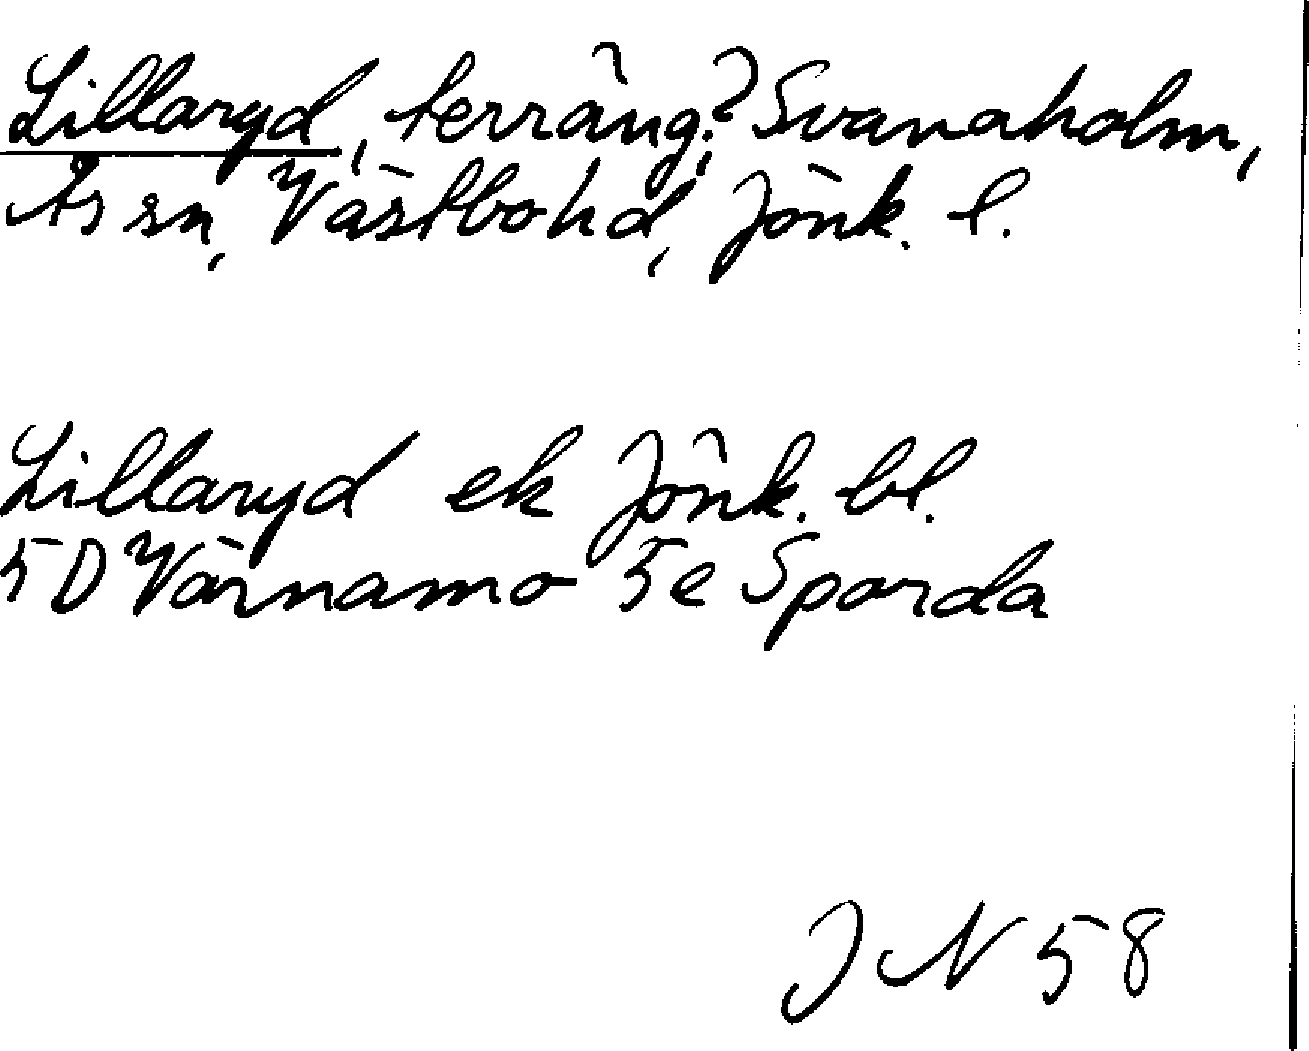 Lillaryd, terräng? Svanaholm,
Ås sn, Västbo hd, Jönk. l.
Lillaryd ek Jönk. bl.
5D Värnamo 5e Sporda
J N 58